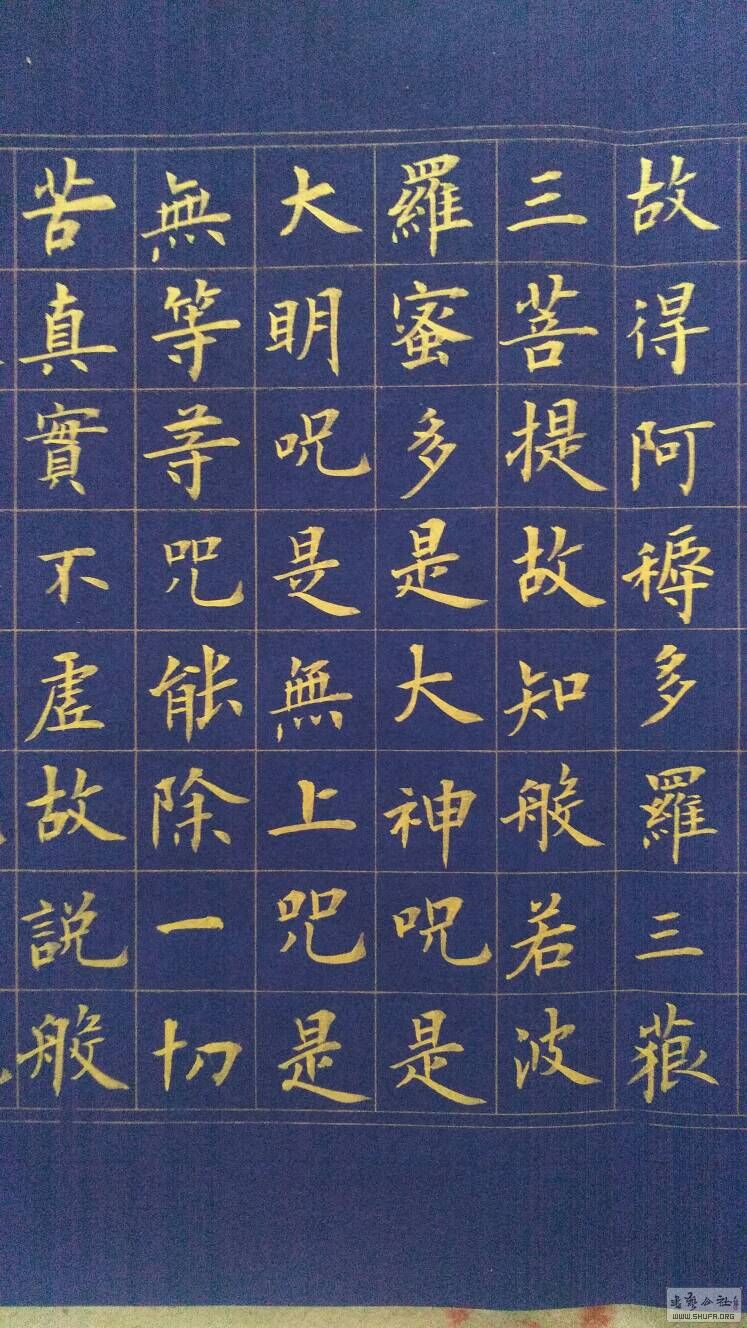 故得阿耨多羅三藐
三菩提故知般若波
羅蜜多是大神呪是
大明呪是無上咒是
無等等咒能除一切
苦真實不虛故説般
WWW.SHUFA.ORG